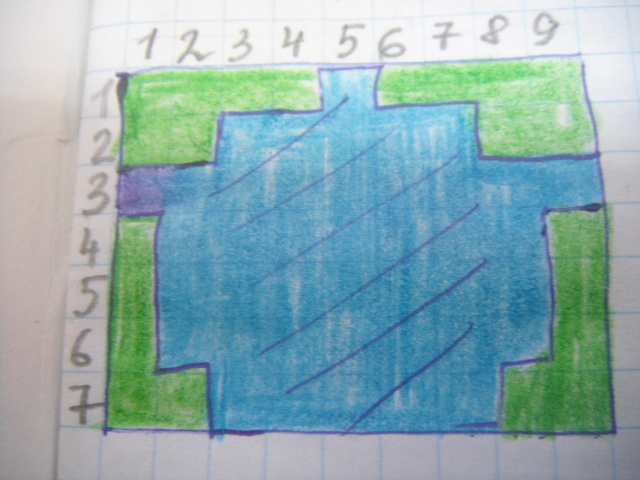 1 2 3 4 5 6 7 8 9
1
2
3
4
5
6
7